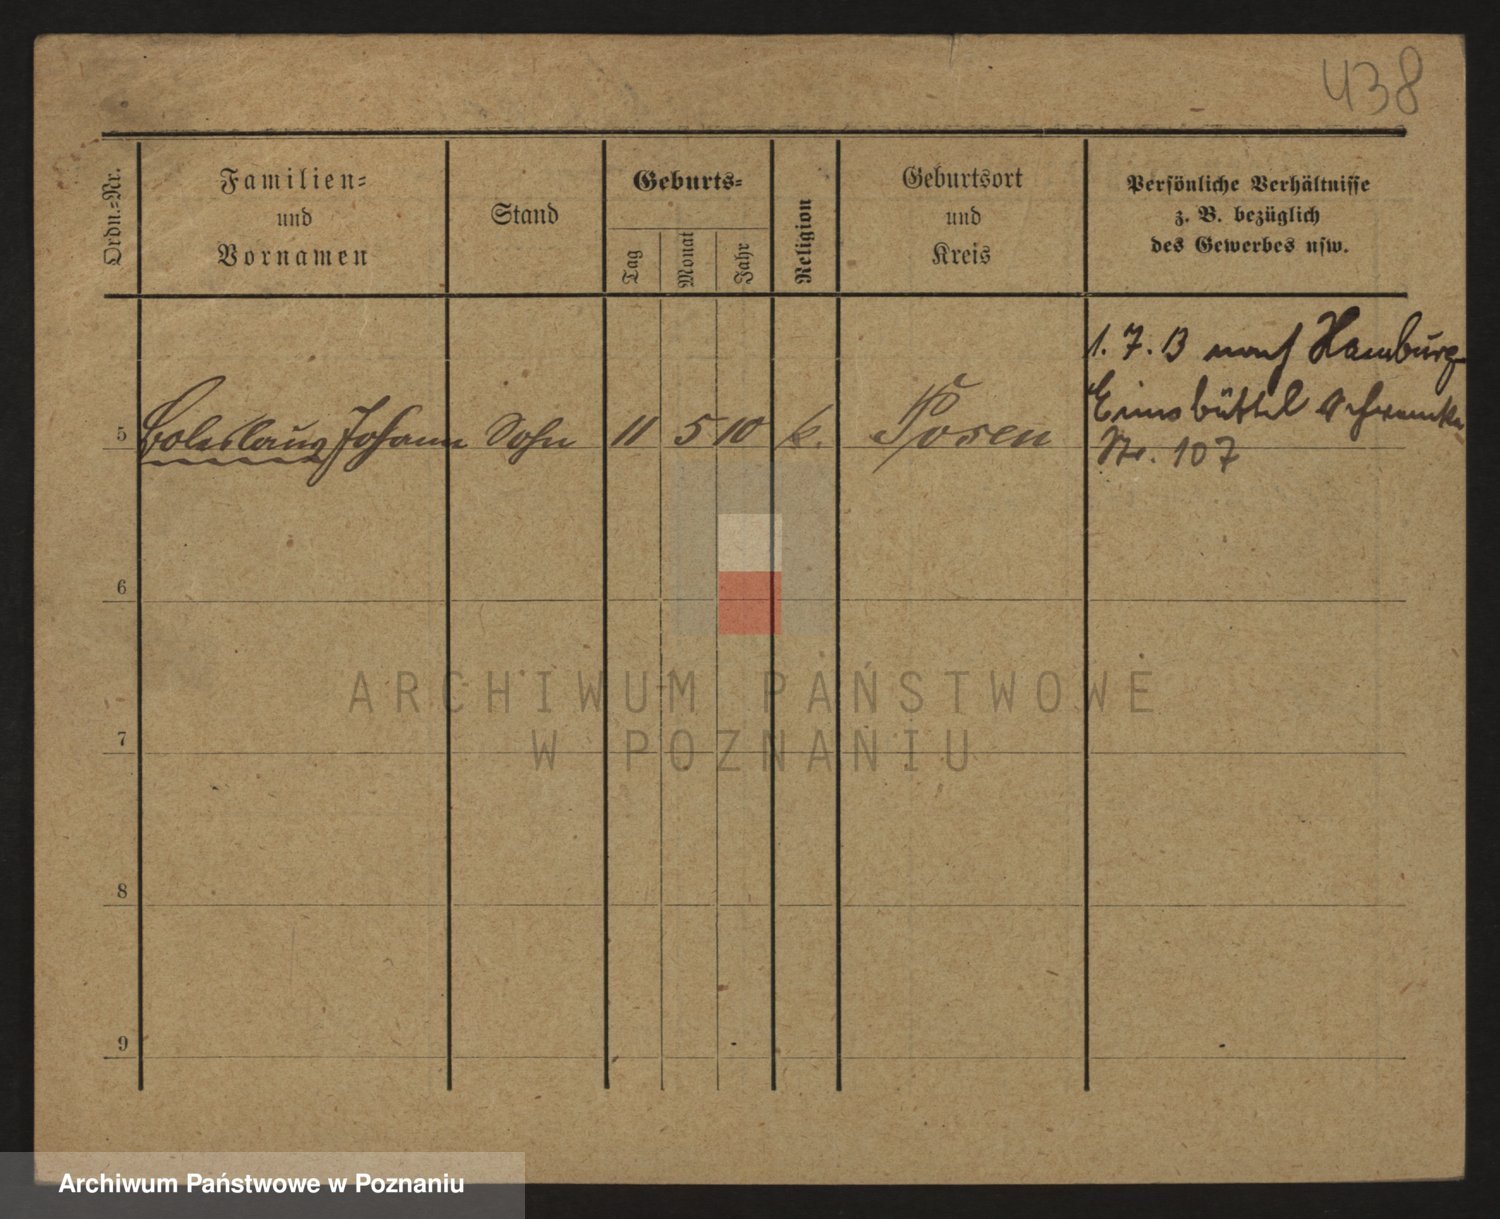 438
Ordn.-Nr.
Familien-
und
Vornamen
Stand
Geburts-
Tag
Monat
Jahr
Religion
Geburtsort
und
Kreis
Persönliche Verhältnisse
z. B. bezüglich
des Gewerbes usw.
1. 7. 13 nach Hamburg
Eimsbüttel
Str. 107
5 Boleslaus Johann Sohn 11 5 10 k. Posen
6
7
8
9
ARCHIWUM PAŃSTWOWE
W POZNANIU
Archiwum Państwowe w Poznaniu